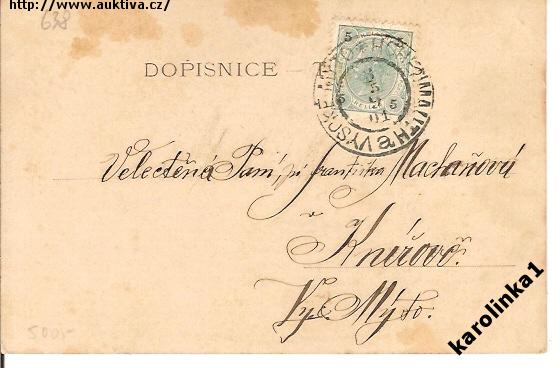 http://www.auktiva.cz/
638
DOPISNICE –
5 5
5 5
VYSOKÉ MÝTO * HOHENMAUTH
5 5
01
Velectěná Paní, pí Františka Machaňová
v
Knířově.
Vys. Mýto.
500,-
karolinka1